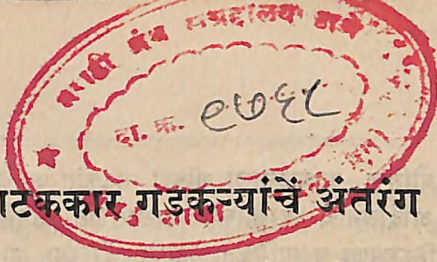 मराठी ग्रंथ संग्रहालय ठाणे
दा. क्र. ९७६८
शाखा
नाटककार गडकऱ्यांचें अंतरंग